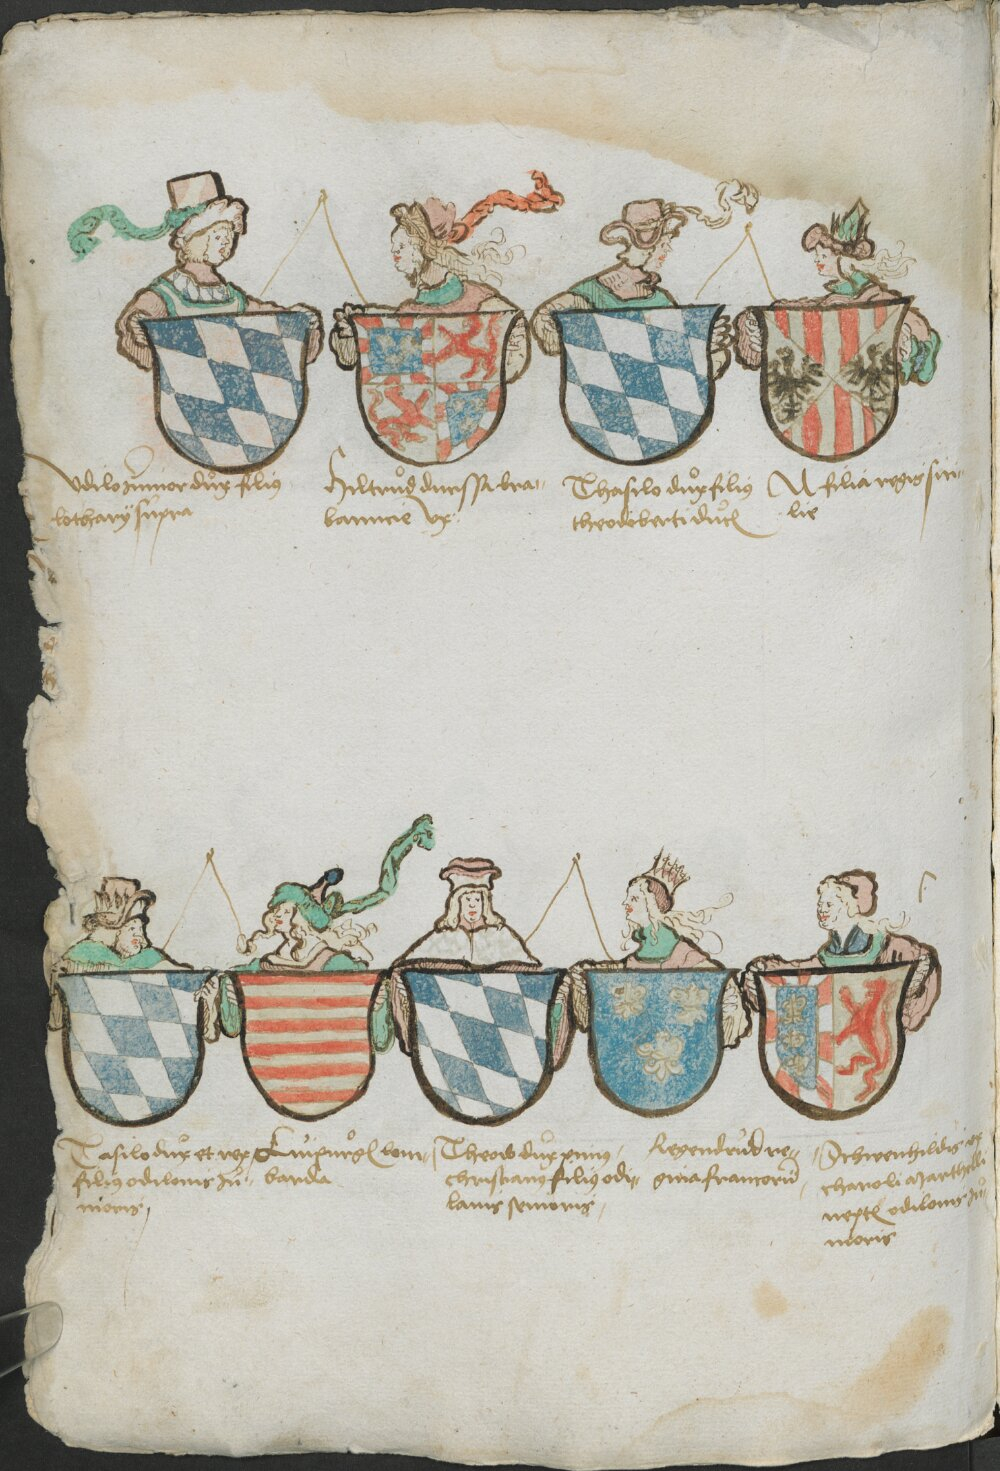 Vdilo Junior dux filius
lotharij supra
Hiltrud ducissa bra-
banncie ux
Thasilo dux filius
theodeberti ducis
N filia regis sici-
lie
Tasilo dux et rex
filius odilonis Ju-
nioris
Luipurg lom-
barda
Theodo dux primus
christianus filius odi-
lonis senioris
Regendrud re-
gina francorum
Schwenhildis ux
charoli Marthelli
neptis odilonis Ju-
nioris